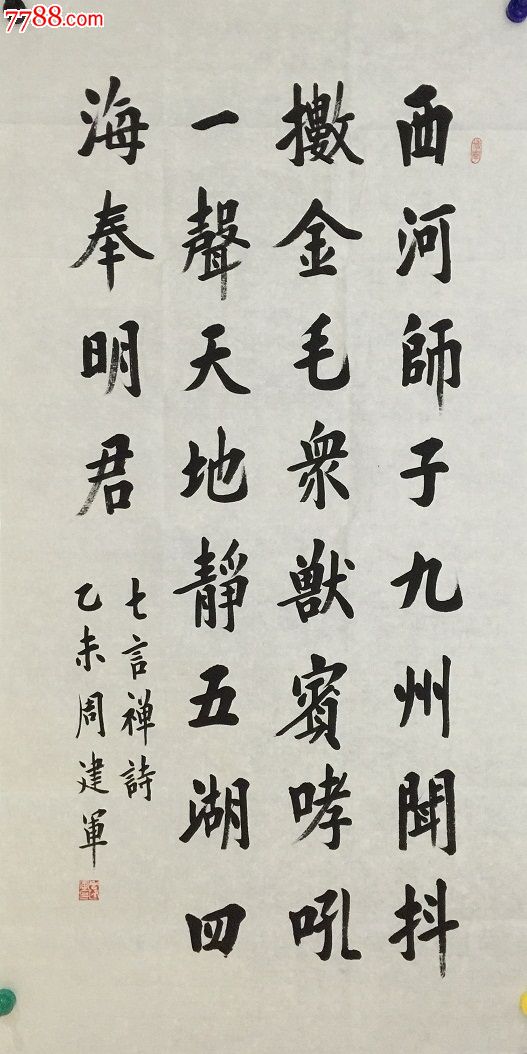 7788.com
西河師子九州聞抖
擻金毛衆獸賓哮吼
一聲天地靜五湖四
海奉明君
七言禅詩
乙未周建軍